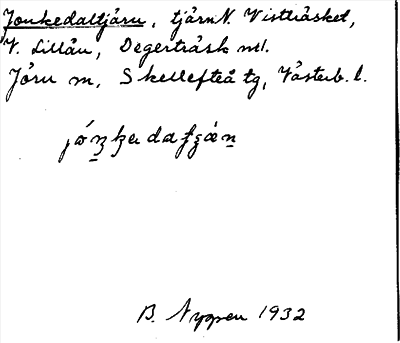 Jonkedaltjärn, tjärn N. Vistträsket,
V. Lillån, Degerträsk ml.
Jörn m, Skellefteå tg, Västerb. l.
B. Nygren 1932